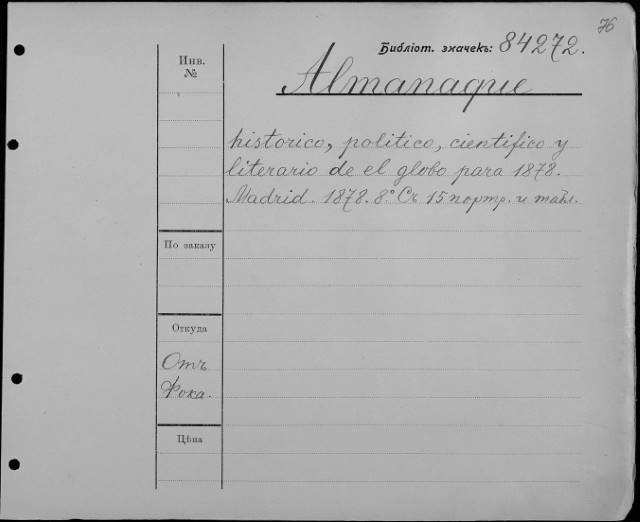 76
Библіот. значекъ: 84272.
Инв.
№
Almanaque
historico, politico, cientifico y
literario de el globo para 1878.
Madrid. 1878. 8° Съ 15 портр. и табл.
По заказу
Откуда
Отъ
Фока.
Цѣна